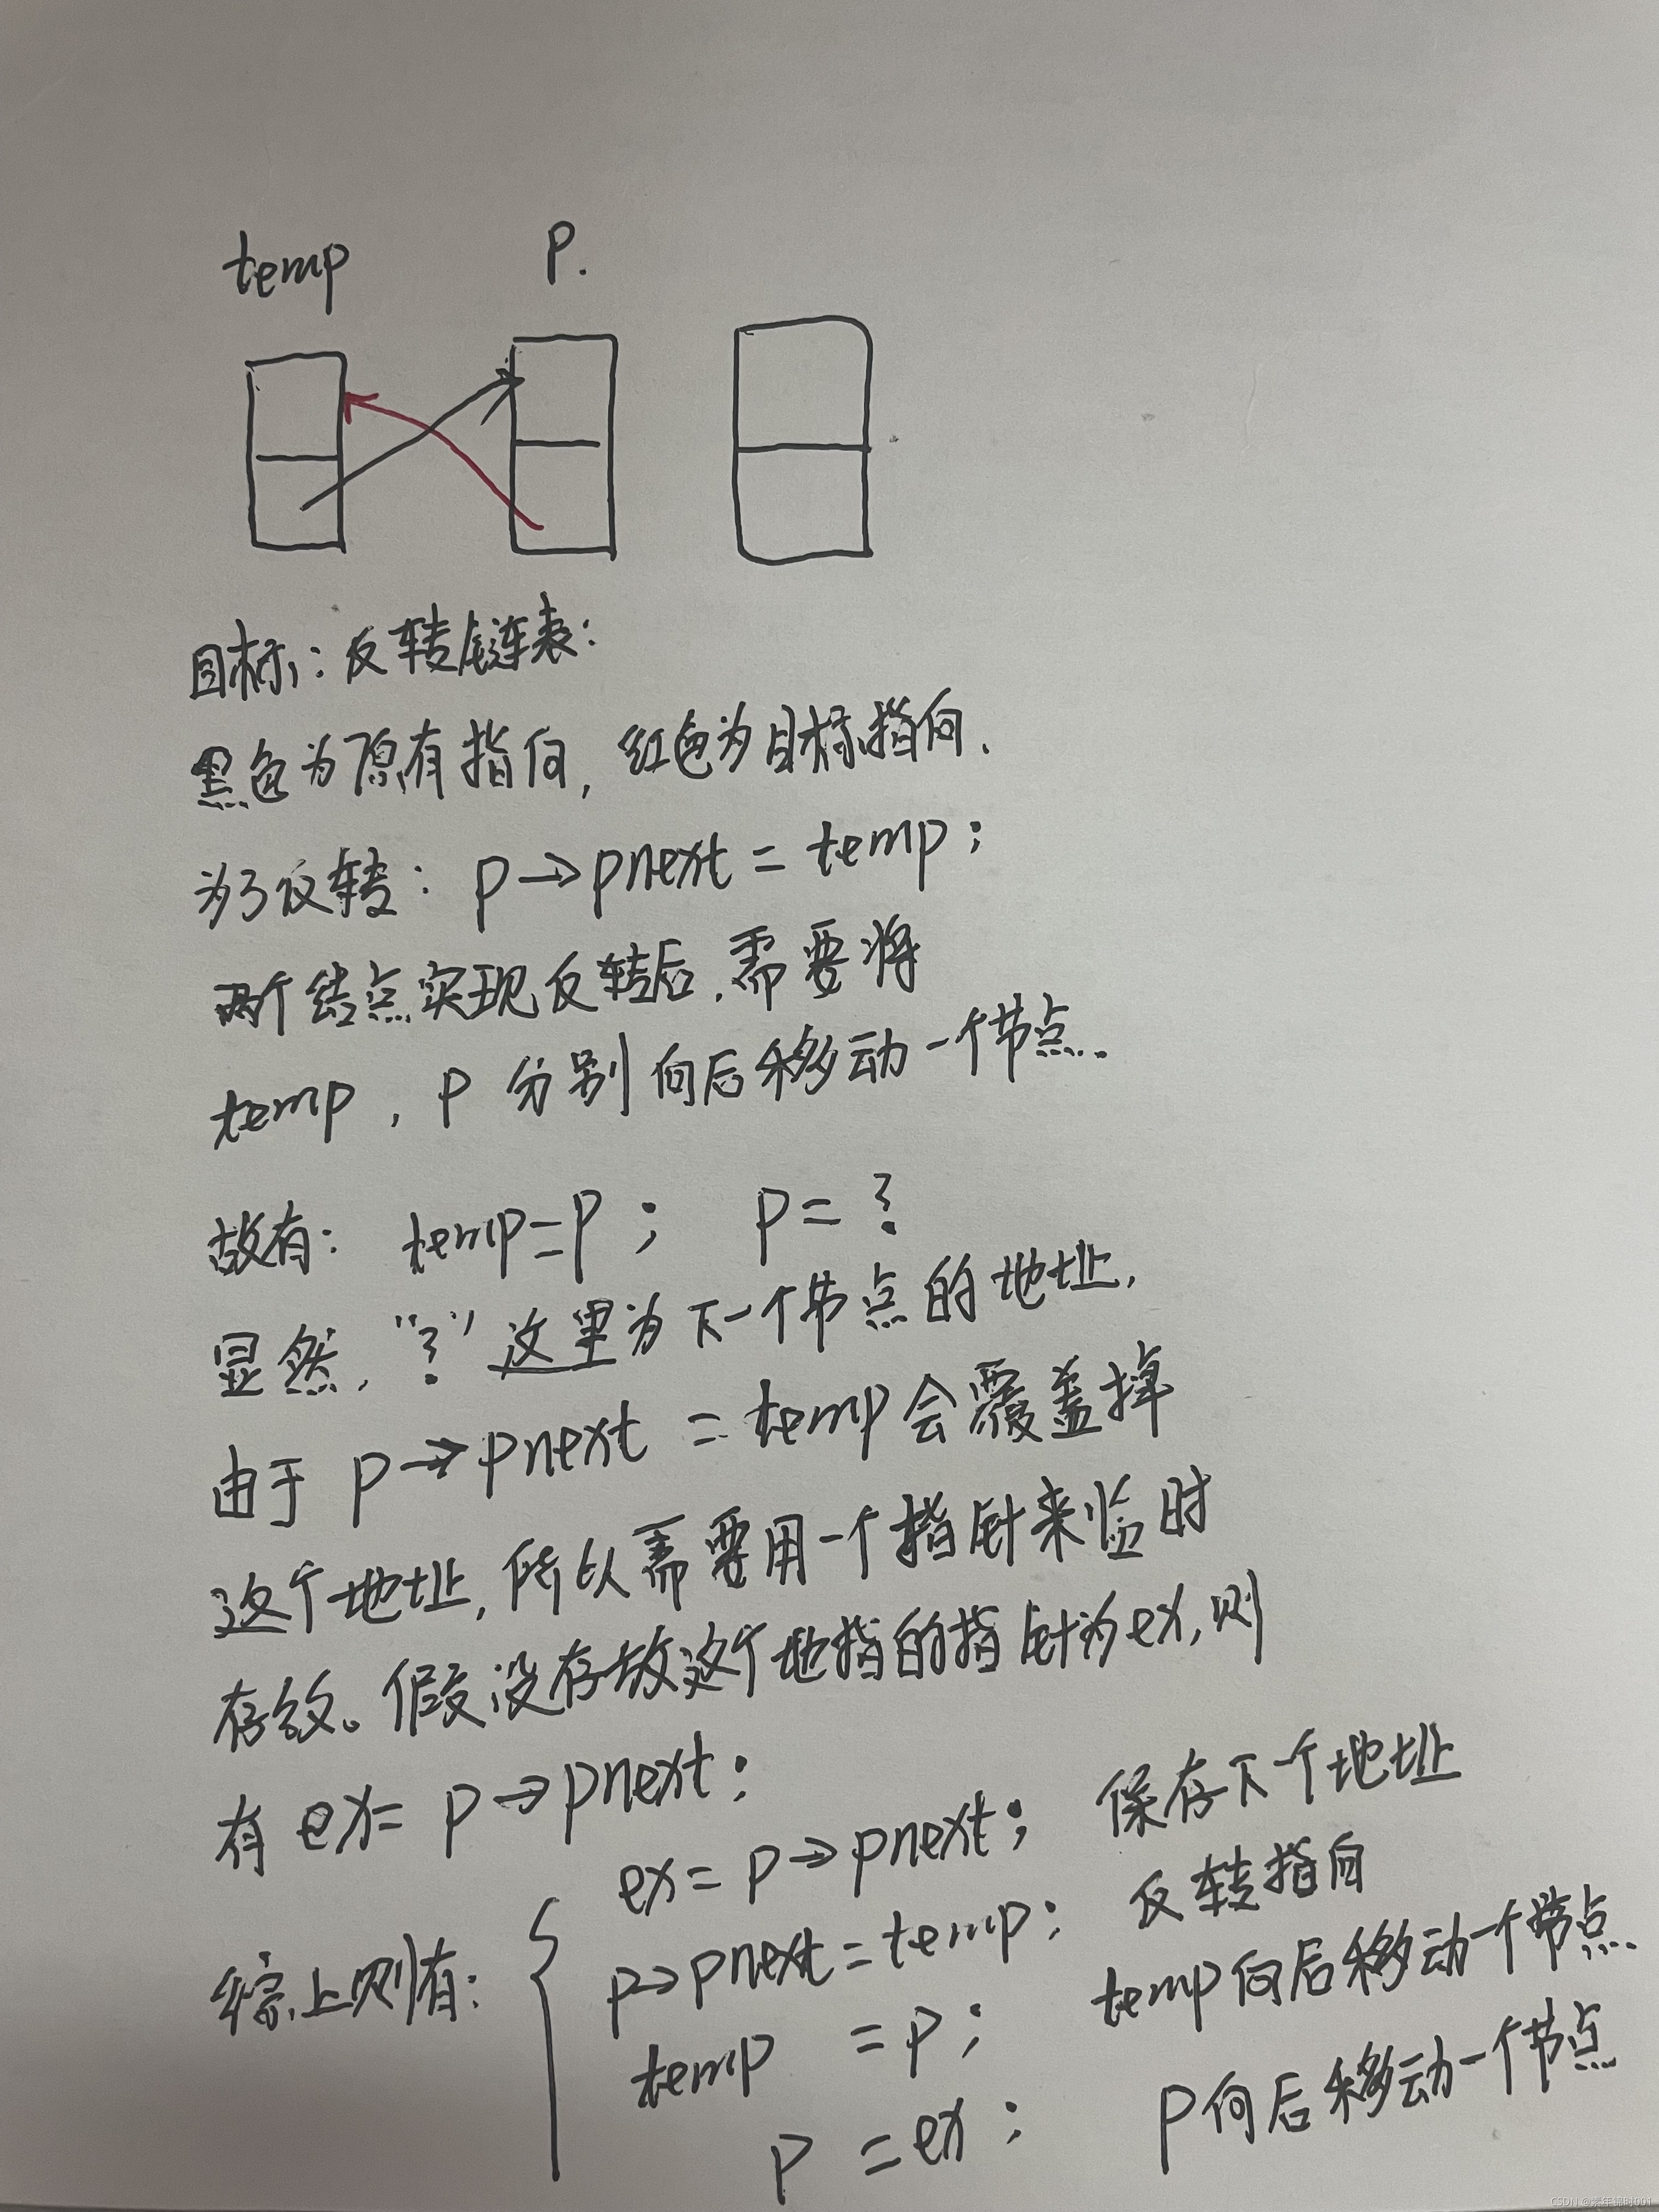 temp P.
目标:反转链表:
黑色为原有指向,红色为目标指向.
为了反转: p→pnext = temp;
两个结点实现反转后,需要将
temp,p 分别向后移动一个节点.
故有: temp=p; p=?
显然,"?"这里为下一个节点的地址,
由于 p→pnext = temp会覆盖掉
这个地址,所以需要用一个指针来临时
存放。假设存放这个地指的指针为ex,则
有 ex= p→pnext;
综上则有:
ex= p→pnext; 保存下个地址
p→pnext=temp; 反转指向
temp =p; temp向后移动一个节点
p =ex; p向后移动一个节点